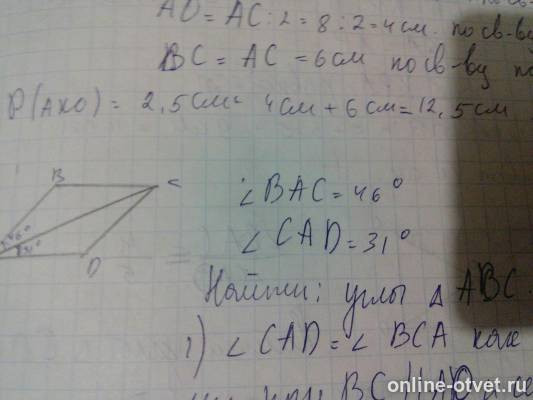 AO = AC : 2 = 8 : 2 = 4 см. по св-ву
BC = AC = 6 см по св-ву
P(AKO) = 2,5 см 4 см + 6 см = 12,5 см
B
C
46°
31°
D
∠BAC = 46°
∠CAD = 31°
Найти: углы △ABC.
1) ∠CAD = ∠BCA как
при BC || AD и се
online-otvet.ru